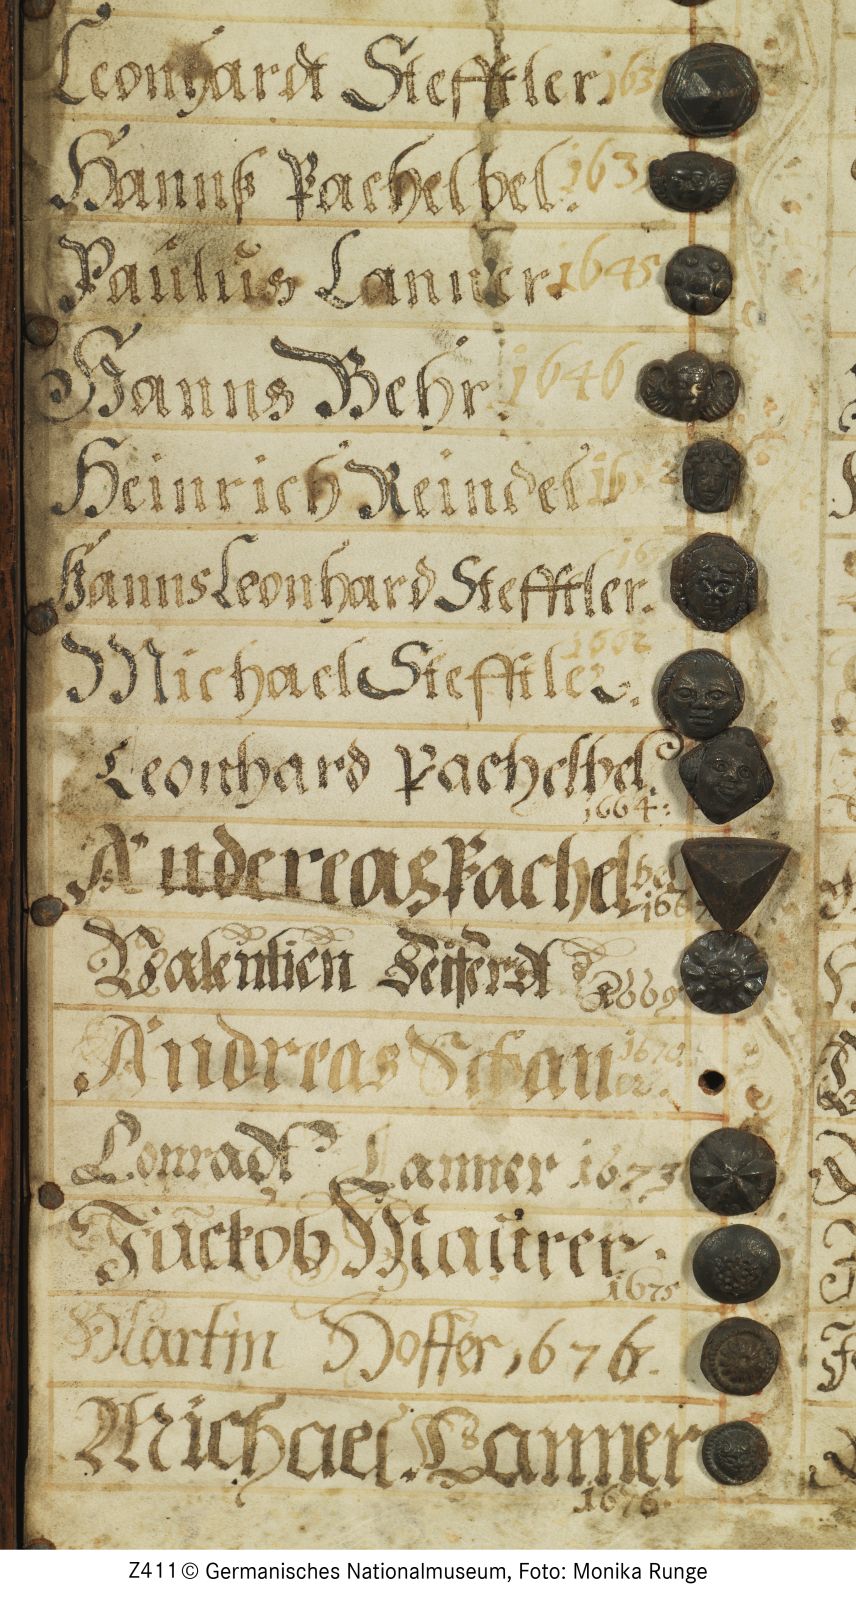 Leonhardt Stefftler. 163
Hannß Pachelbel. 163
Paulus Lanner. 1645
Hanns Behr. 1646
Heinrich Reindel 16
Hanns Leonhard Stefftler. 16
Michael Stefftler. 1662
Leonhard Pachelbel.
1664:
Andereas Pachelbel
1667
Valentien Seiferdt 1669
Andreas Schauer. 1670
Conradt Lanner 1673
Jackob Maurer.
1675
Martin Hoffer, 1676.
Michael. Lanner
1676.
Z411 © Germanisches Nationalmuseum, Foto: Monika Runge